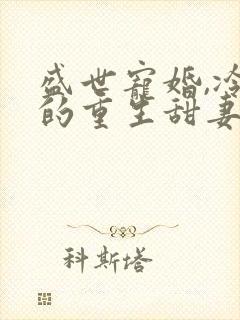 盛世寵婚,冷
的重生甜妻
科斯塔